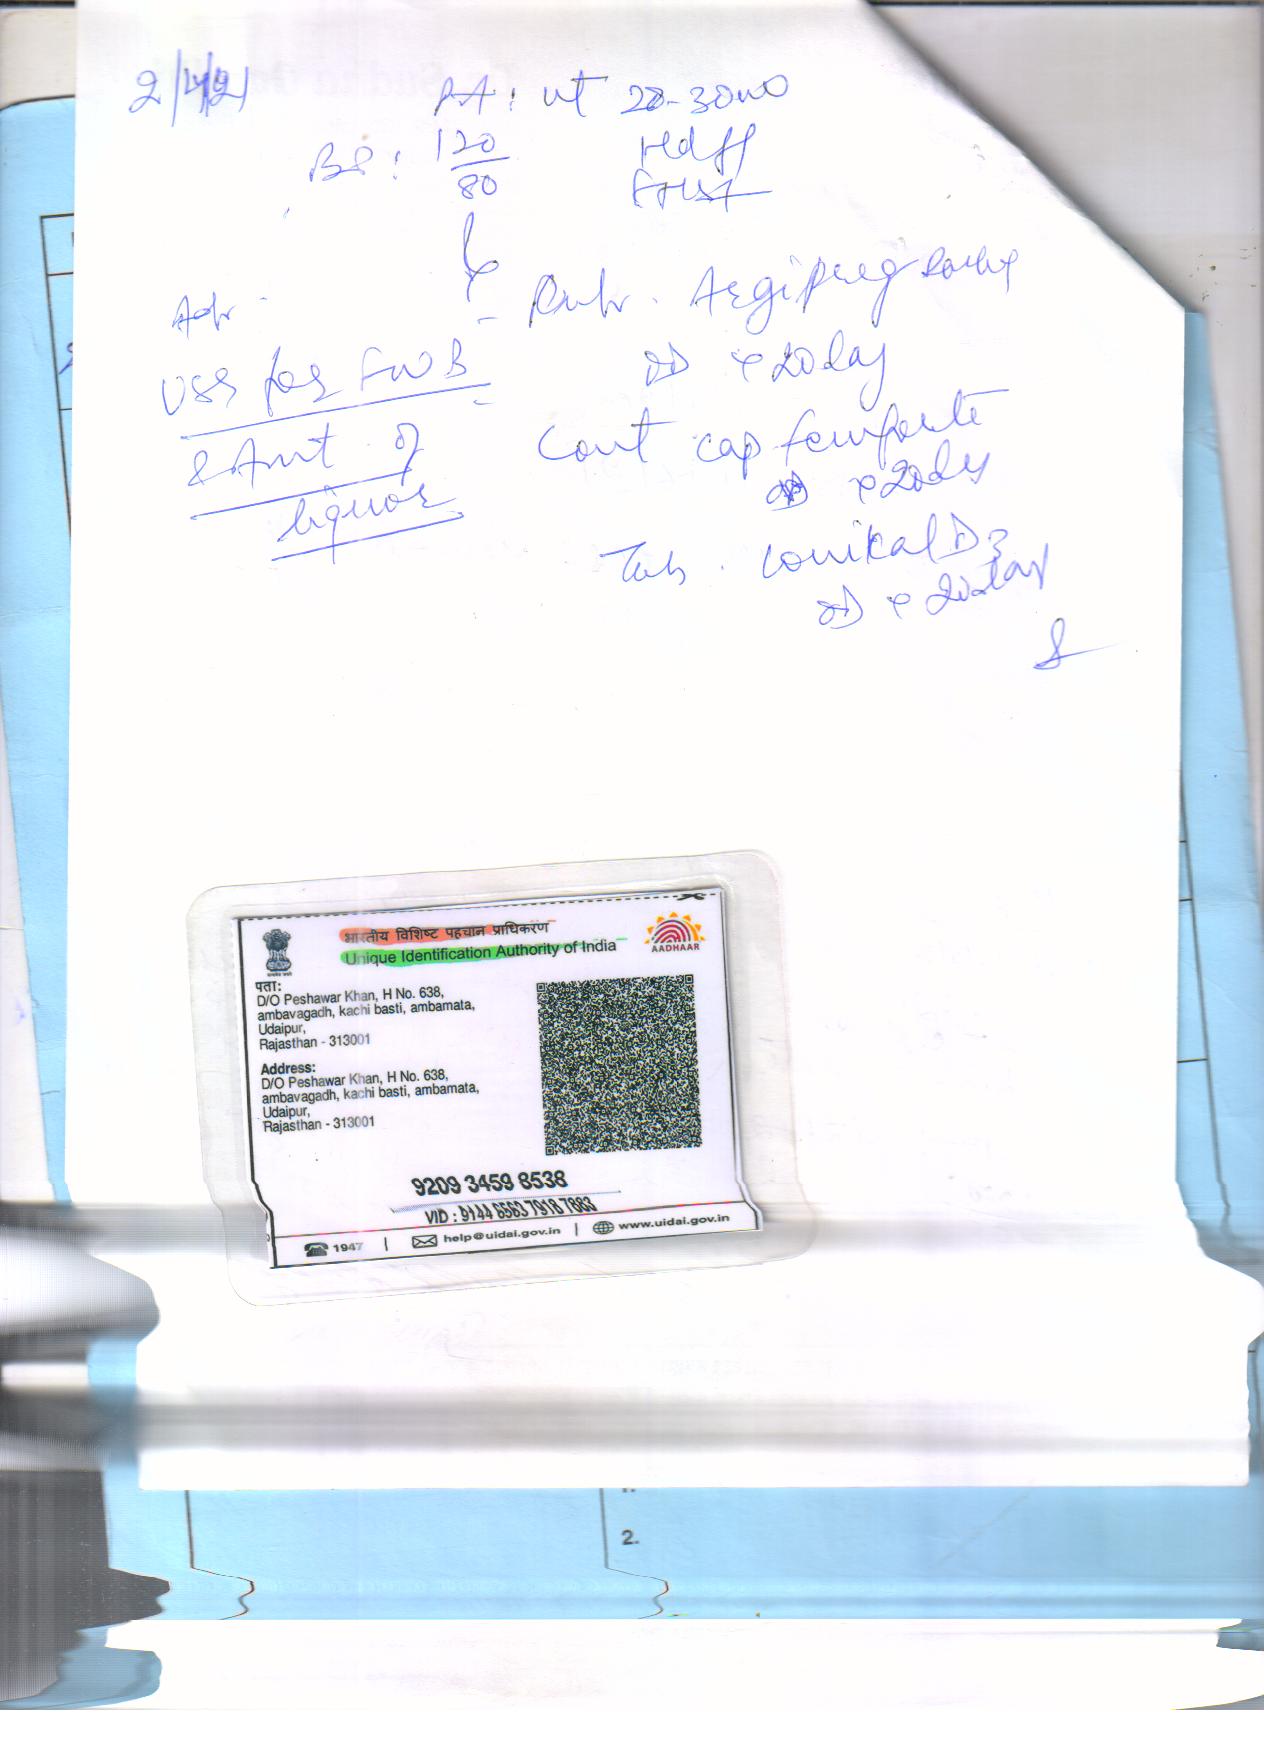 2/4/21
P/A : ut 28-30wo
BP : 120/80
Hdff
FHS+
Adv
- Pulv. Argipreg sachet
USG for FWB
OD x 20day
& Amt of
liquor
Cont cap
OD x 20day
Tab. D3
OD x 20day
भारतीय विशिष्ट पहचान प्राधिकरण
Unique Identification Authority of India
AADHAAR
पता:
D/O Peshawar Khan, H No. 638,
ambavagadh, kachi basti, ambamata,
Udaipur,
Rajasthan - 313001
Address:
D/O Peshawar Khan, H No. 638,
ambavagadh, kachi basti, ambamata,
Udaipur,
Rajasthan - 313001
9209 3459 8538
VID : 9144 6563 7918 7883
1947 | help@uidai.gov.in | www.uidai.gov.in
1.
2.